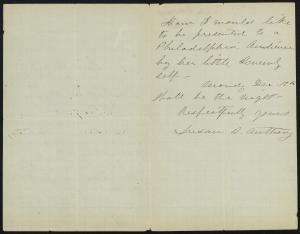 How I would like
to be presented to a
Philadelphia Audience
by her little
self -
shall be the night -
Respectfully yours
Susan B. Anthony